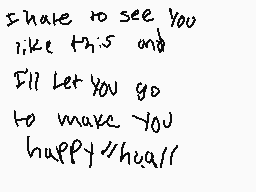 I hate to see You
like this and
I'll Let You go
to make You
happy